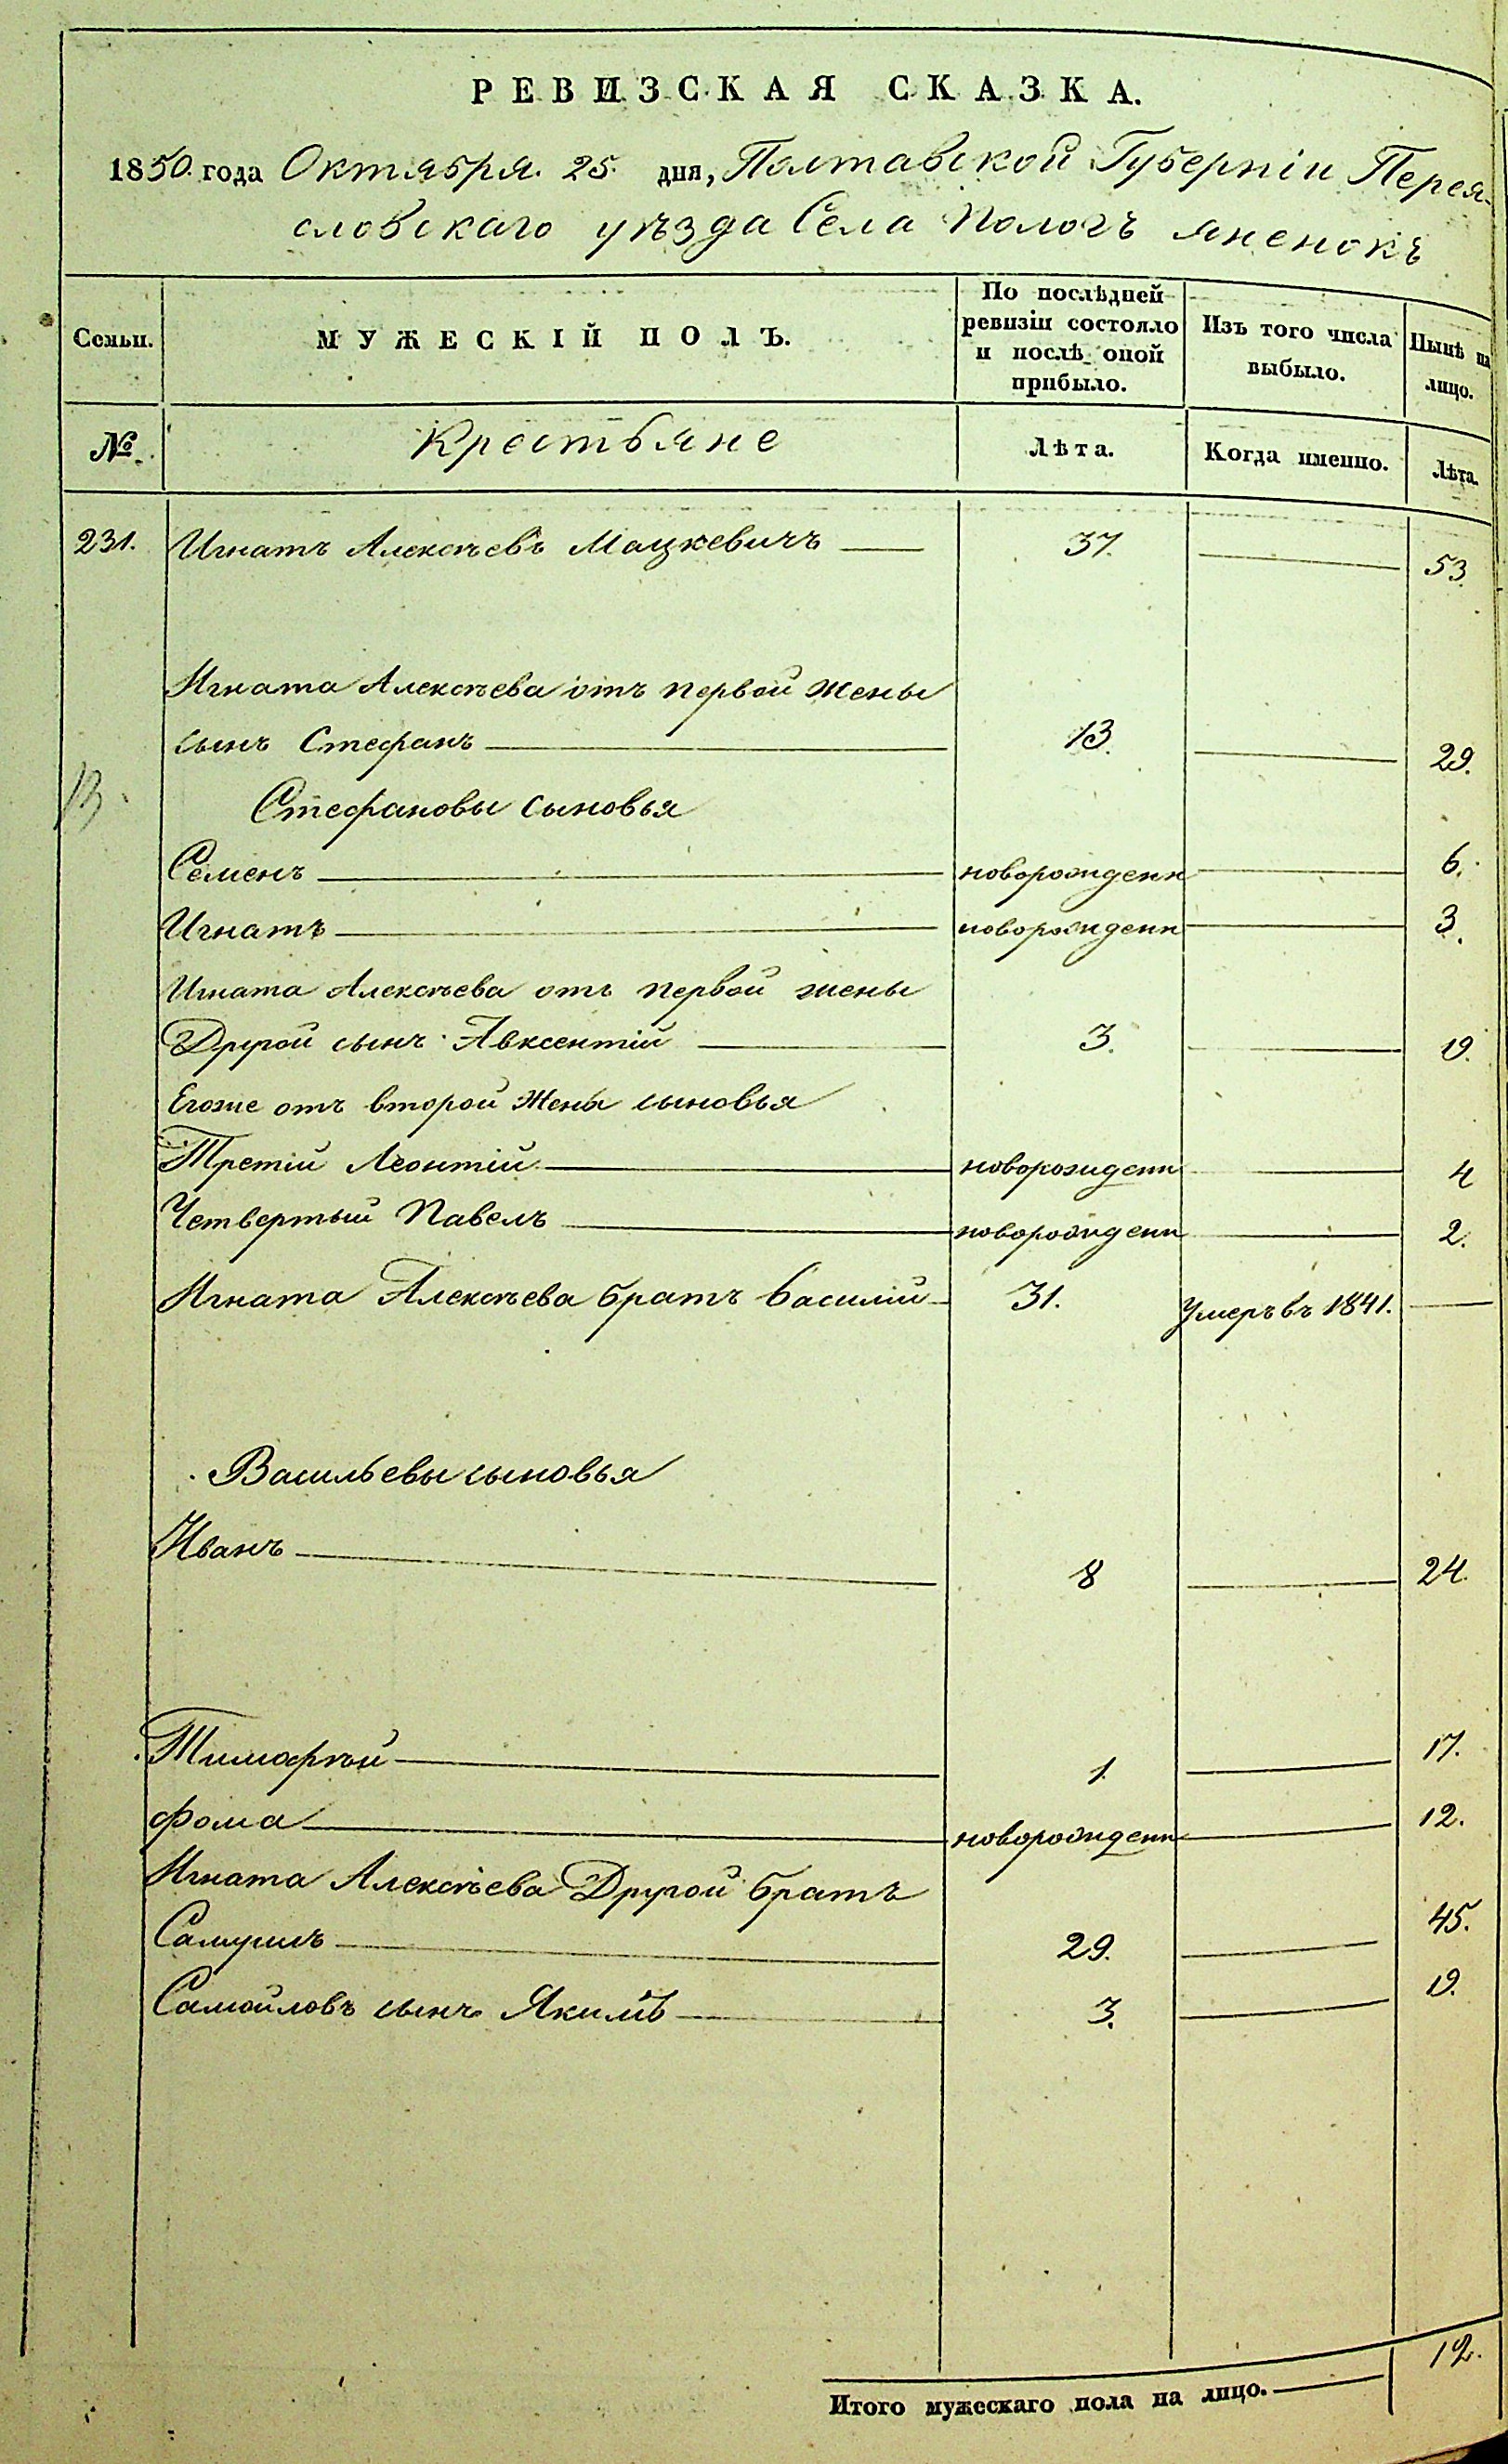 РЕВИЗСКАЯ СКАЗКА.
1850. года Октября. 25. дня, Полтавской Губерніи Перея-
словскаго уѣзда Села Пологъ яненокъ
Семьи. МУЖЕСКІЙ ПОЛЪ. По послѣдней ревизіи состояло и послѣ оной прибыло. Изъ того числа выбыло. Нынѣ на лицо.
№. Крестьяне Лѣта. Когда именно. Лѣта.
231. Игнатъ Алексѣевъ Мацкевичъ 37. 53.
Игната Алексѣева отъ первой жены
сынъ Стефанъ 13. 29.
Стефановы сыновья
Семенъ новорожденн 6.
Игнатъ новорожденн 3.
Игната Алексѣева отъ первой жены
Другой сынъ Авксентій 3. 19.
Егоже отъ второй жены сыновья
Третій Леонтій новорожденн 4
Четвертый Павелъ новорожденн 2.
Игната Алексѣева братъ Василій 31. умеръ въ 1841.
Васильевы сыновья
Иванъ 8 24.
Тимофѣй 1. 17.
Фома новорожденн 12.
Игната Алексѣева Другой братъ
Самуилъ 29. 45.
Самойловъ сынъ Якимъ 3. 19.
Итого мужескаго пола на лицо. 12.